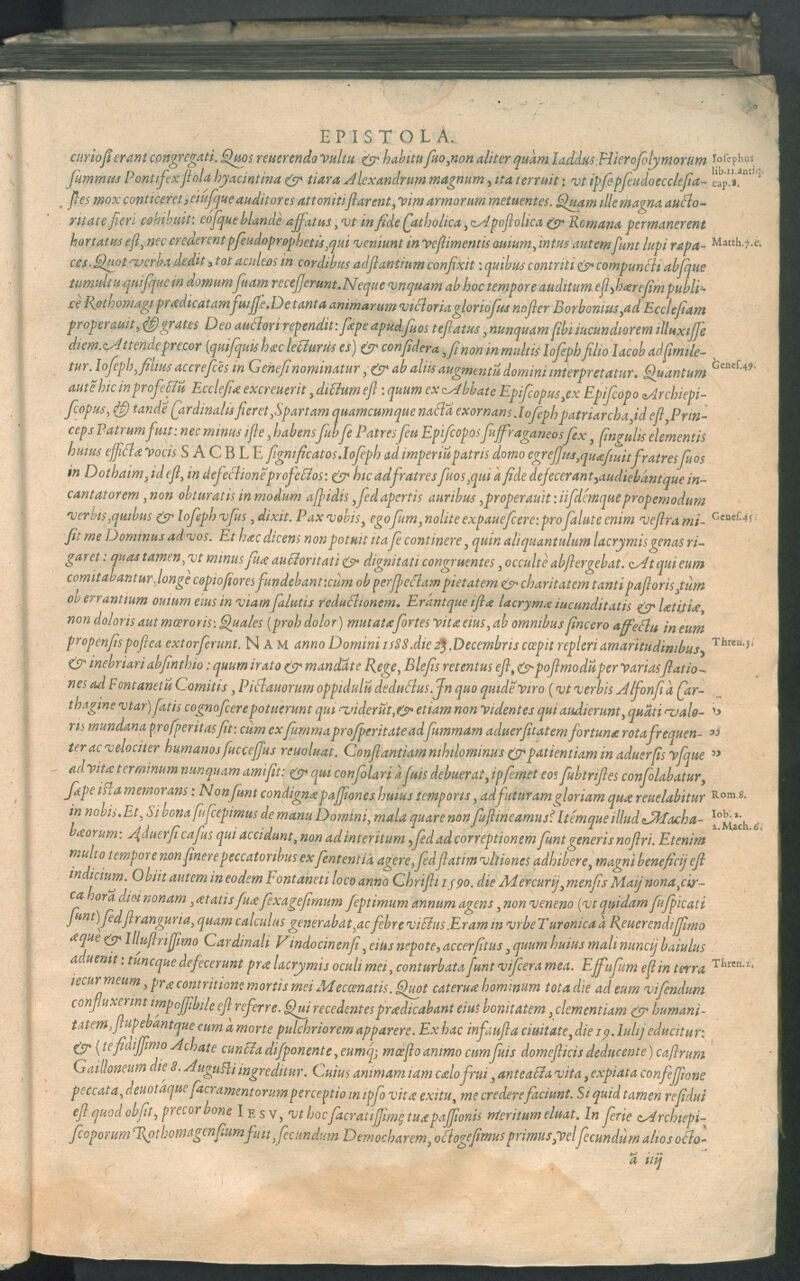 EPISTOLA.
curiosi erant congregati. Quos reuerendo vultu & habitu suo, non aliter quàm Iaddus Hierosolymorum
Iosephus
lib.11.antiq.
cap.8.
summus Pontifex stola hyacintina & tiara Alexandrum magnum, ita terruit: vt ipse pseudoecclesia-
stes mox conticeret, eiusque auditores attoniti starent, vim armorum metuentes. Quam ille magna aucto-
ritate fieri cohibuit: eosque blandè affatus, vt in fide Catholica, Apostolica & Romana permanerent
hortatus est, nec crederent pseudoprophetis, qui veniunt in vestimentis ouium, intus autem sunt lupi rapa-
Matth.7.c.
ces. Quot verba dedit, tot aculeos in cordibus adstantium confixit: quibus contriti & compuncti absque
tumultu quisque in domum suam recesserunt. Neque vnquam ab hoc tempore auditum est, hæresim publi-
cè Rothomagi prædicatam fuisse. De tanta animarum victoria gloriosus noster Borbonius, ad Ecclesiam
properauit, & grates Deo auctori rependit: sæpe apud suos testatus, nunquam sibi iucundiorem illuxisse
diem. Attende precor (quisquis hæc lecturus es) & considera, si non in multis Ioseph filio Iacob adsimile-
tur. Ioseph, filius accrescēs in Genesi nominatur, & ab aliis augmentū domini interpretatur. Quantum
Genes.49.
autē hic in profectū Ecclesiæ excreuerit, dictum est: quum ex Abbate Episcopus, ex Episcopo Archiepi-
scopus, & tandē Cardinalis fieret, Spartam quamcumque nactā exornans. Ioseph patriarcha, id est, Prin-
ceps Patrum fuit: nec minus iste, habens sub se Patres seu Episcopos suffraganeos sex, singulis elementis
huius effictæ vocis SACBLE significatos. Ioseph ad imperiū patris domo egressus, quæsiuit fratres suos
in Dothaim, id est, in defectionē profectos: & hic ad fratres suos, qui à fide defecerant, audiebántque in-
cantatorem, non obturatis in modum aspidis, sed apertis auribus, properauit: iisdémque propemodum
verbis, quibus & Ioseph vsus, dixit. Pax vobis, ego sum, nolite expauescere: pro salute enim vestra mi-
Genes.45.
sit me Dominus ad vos. Et hæc dicens non potuit ita se continere, quin aliquantulum lacrymis genas ri-
garet: quas tamen, vt minus suæ auctoritati & dignitati congruentes, occultè abstergebat. At qui eum
comitabantur, longè copiosiores fundebant: cùm ob perspectam pietatem & charitatem tanti pastoris, tùm
ob errantium ouium eius in viam salutis reductionem. Erántque istæ lacrymæ iucunditatis & lætitiæ,
non doloris aut mœroris: Quales (proh dolor) mutatæ sortes vitæ eius, ab omnibus sincero affectu in eum
propensis postea extorserunt. NAM anno Domini 1588. die 23. Decembris cœpit repleri amaritudinibus,
Thren.3.
& inebriari absinthio: quum irato & mandāte Rege, Blesis retentus est, & postmodū per varias statio-
nes ad Fontanetū Comitis, Pictauorum oppidulū deductus. In quo quidē viro (vt verbis Alfonsi à Car-
thagine vtar) satis cognoscere potuerunt qui viderūt, & etiam non videntes qui audierunt, quāti vale-
ris mundana prosperitas sit: cùm ex summa prosperitate ad summam aduersitatem fortunæ rota frequen-
ter ac velociter humanos successus reuoluat. Constantiam nihilominus & patientiam in aduersis vsque
ad vitæ terminum nunquam amisit: & qui consolari à suis debuerat, ipsemet eos subtristes consolabatur,
sæpe ista memorans: Non sunt condignæ passiones huius temporis, ad futuram gloriam quæ reuelabitur
Rom.8.
in nobis. Et, Si bona suscepimus de manu Domini, mala quare non sustineamus? Itémque illud Macha-
Iob.2.
2.Mach.6.
bæorum: Aduersi casus qui accidunt, non ad interitum, sed ad correptionem sunt generis nostri. Etenim
multo tempore non sinere peccatoribus ex sententia agere, sed statim vltiones adhibere, magni beneficij est
indicium. Obiit autem in eodem Fontaneti loco anno Christi 1590. die Mercurij, mensis Maij nona, cir-
ca hora diei nonam, ætatis suæ sexagesimum septimum annum agens, non veneno (vt quidam suspicati
sunt) sed stranguria, quam calculus generabat, ac febre victus. Eram in vrbe Turonica à Reuerendissimo
æque & Illustrissimo Cardinali Vindocinensi, eius nepote, accersitus, quum huius mali nuncij baiulus
aduenit: túncque defecerunt præ lacrymis oculi mei, conturbata sunt viscera mea. Effusum est in terra
Thren.2.
iecur meum, præ contritione mortis mei Mecœnatis. Quot cateruæ hominum tota die ad eum visendum
confluxerint impossibile est referre. Qui recedentes prædicabant eius bonitatem, clementiam & humani-
tatem, stupebántque eum à morte pulchriorem apparere. Ex hac infausta ciuitate, die 19. Iulij educitur:
& (te fidissimo Achate cuncta disponente, eumq; mœsto animo cum suis domesticis deducente) castrum
Gailloneum die 8. Augusti ingreditur. Cuius animam iam cælo frui, anteacta vita, expiata confessione
peccata, deuotáque sacramentorum perceptio in ipso vitæ exitu, me credere faciunt. Si quid tamen residui
est quod obsit, precor bone IESV, vt hoc sacratissimę tuæ passionis meritum eluat. In serie Archiepi-
scoporum Rothomagensium fuit, secundum Democharem, octogesimus primus, vel secundùm alios octo-
a iij